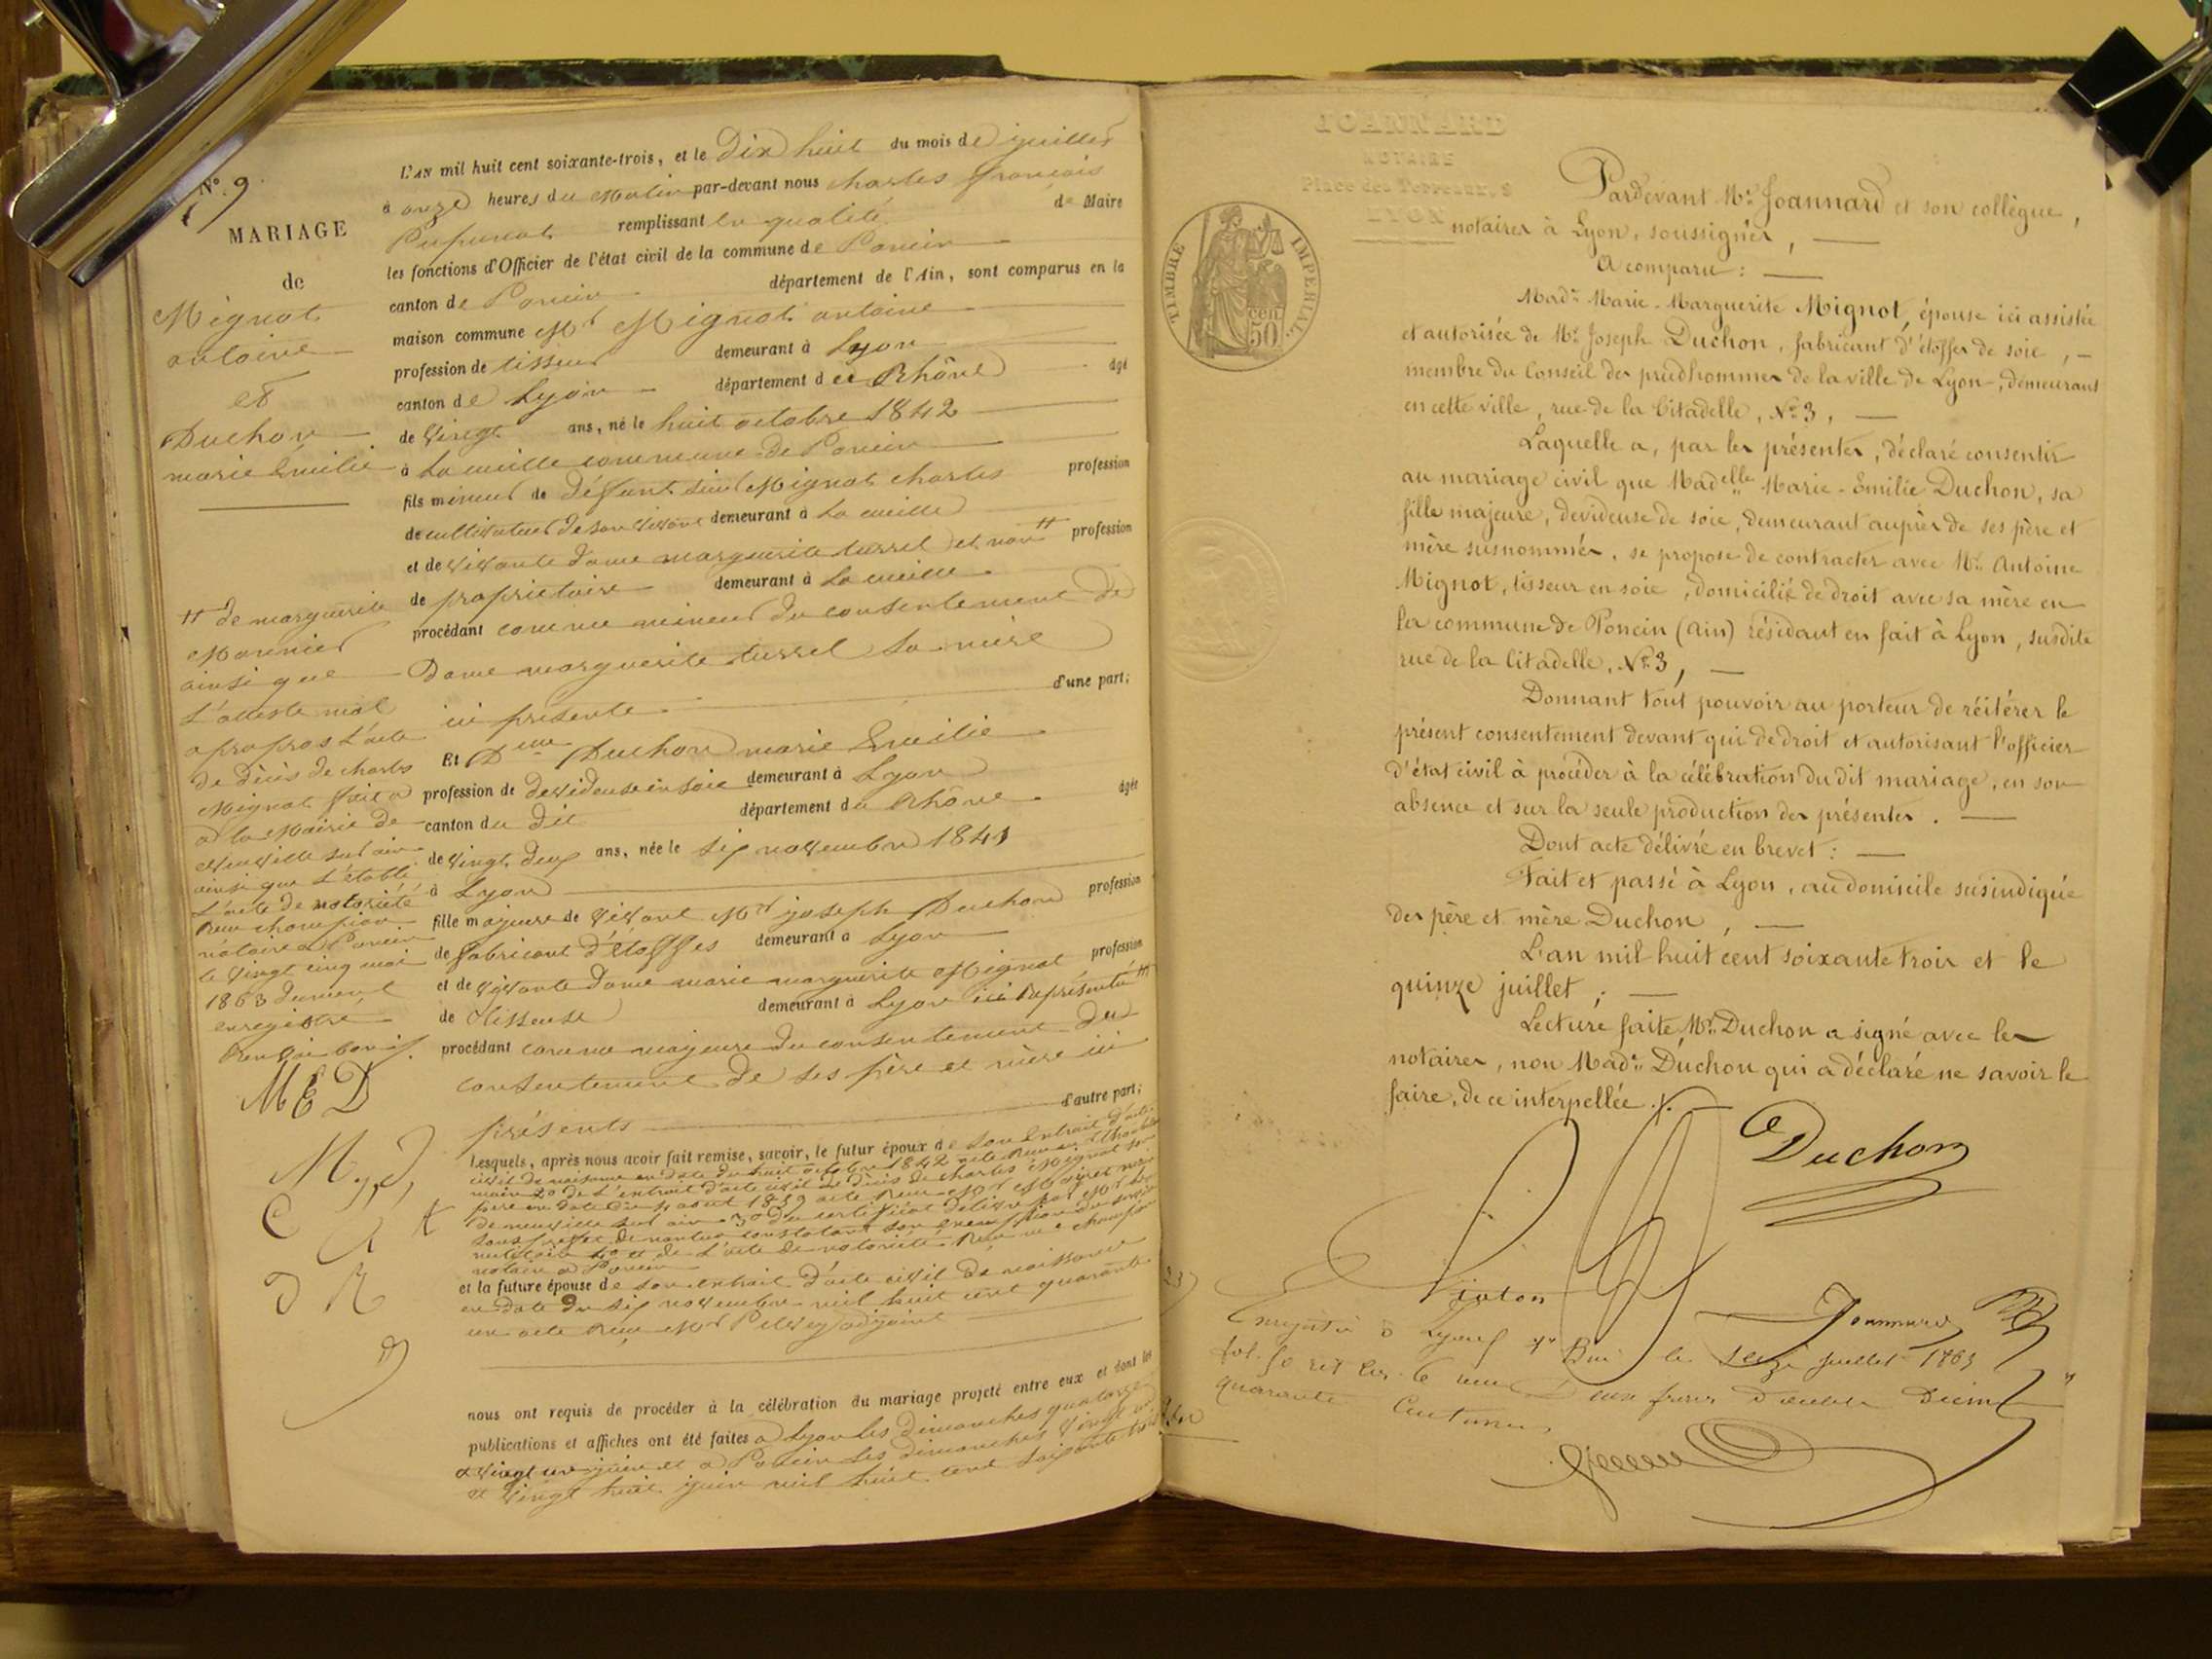 N° 9
MARIAGE
de
Mignot
antoine
et
Duchon
marie Émilie
L'AN mil huit cent soixante-trois, et le Dix huit du mois de juillet
à onze heures du Matin par-devant nous charles françois
remplissant la qualité de Maire
les fonctions d'Officier de l'état civil de la commune de Poncin
canton de Poncin département de l'Ain, sont comparus en la
maison commune Mr Mignot antoine
profession de tisseur demeurant à Lyon
canton de Lyon département du Rhône âgé
de vingt ans, né le huit octobre 1842
à la cueille commune de Poncin
fils mineur de Déffunt sieur Mignot charles profession
de cultivateur de son vivant demeurant à La cueille
et de vivante dame marguerite turrel et non # profession
de propriétaire demeurant à La cueille
procédant comme mineur du consentement de
Dame marguerite turrel sa mère
ici présente d'une part;
Et Dlle Duchon marie Émilie
profession de devideuse en soie demeurant à Lyon
canton du dit département du Rhône âgée
de vingt deux ans, née le six novembre 1841
à Lyon
fille majeure de vivant Mr joseph Duchon profession
de fabricant d'étoffes demeurant à Lyon
et de vivante dame marie marguerite Mignot profession
de tisseuse demeurant à Lyon ici représenté
procédant comme majeure du consentement du
consentement de ses père et mère ici
présents d'autre part;
# de marguerite
Monnier
ainsi que
l'atteste mal
a propos l'acte
de décès de charles
Mignot fait a
a la Mairie de
neuville sur ain
ainsi que l'établi
l'acte de notoriété
reçu champion
notaire a Poncin
le vingt cinq mai
1863 dument
enregistré
Renvoi bon
M E D
M. J,
Lesquels, après nous avoir fait remise, savoir, le futur époux de son extrait d'acte
civil de naissance en date du huit octobre 1842
2° de l'extrait d'acte civil de décès de charles Mignot son
père en date du 4 aout 1859
de neuville sur ain 3° du certificat délivré par Mr le
sous préfet de nantua constatant son exemption du service
militaire 4° et de l'acte de notoriété reçu me champion
notaire a Poncin
et la future épouse de son extrait d'acte civil de naissance
en date du six novembre mil huit cent quarante
un acte reçu Mr adjoint
nous ont requis de procéder à la célébration du mariage projeté entre eux et dont les
publications et affiches ont été faites a Lyon les dimanches quatorze
et vingt un juin et a Poncin les dimanches vingt un
et vingt huit juin mil huit cent soixante trois
JOANNARD
NOTAIRE
Place des Terreaux, 9
LYON
TIMBRE IMPERIAL
50 cen
Pardevant Me Joannard et son collègue,
notaires à Lyon, soussignés,
A comparu:
Made Marie-Marguerite Mignot, épouse ici assistée
et autorisée de Mr Joseph Duchon, fabricant d'étoffes de soie,
membre du Conseil des prudhommes de la ville de Lyon, demeurant
en cette ville, rue de la Citadelle, No 3,
Laquelle a, par les présentes, déclaré consentir
au mariage civil que Madelle Marie-Emilie Duchon, sa
fille majeure, devideuse de soie, demeurant auprès de ses père et
mère susnommés, se propose de contracter avec Mr Antoine
Mignot, tisseur en soie, domicilié de droit avec sa mère en
la commune de Poncin (Ain) résidant en fait à Lyon, susdite
rue de la Citadelle, No 3,
Donnant tout pouvoir au porteur de réitérer le
présent consentement devant qui de droit et autorisant l'officier
d'état civil à procéder à la célébration du dit mariage, en son
absence et sur la seule production des présentes.
Dont acte délivré en brevet:
Fait et passé à Lyon, au domicile susindiqué
des père et mère Duchon,
L'an mil huit cent soixante trois et le
quinze juillet;
Lecture faite, Mr Duchon a signé avec les
notaires, non Made Duchon qui a déclaré ne savoir le
faire, de ce interpellée.
Duchon
Joannard
Enregistré à Lyon le seize juillet 1863
quarante Centimes